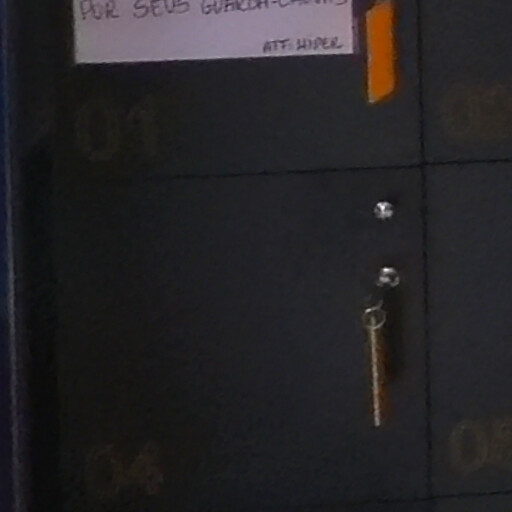 POR SEUS GUARDA-CHUVAS
ATT: HIPER
01
04